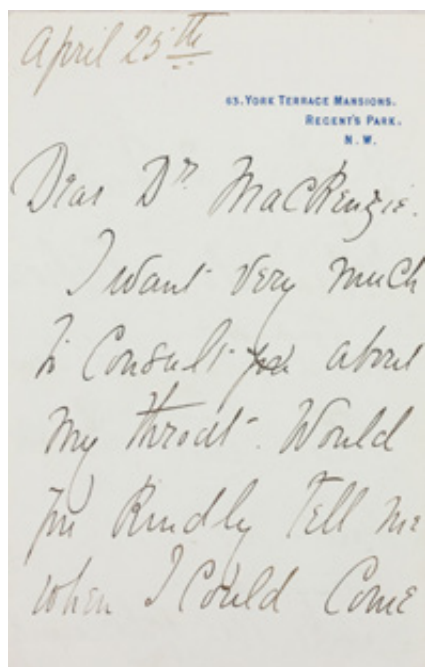 April 25th
63. York Terrace Mansions.
Regent's Park.
N. W.
Dear Dr. MacKenzie.
I want very much
to Consult you about
my throat. Would
you Kindly Tell me
when I Could Come